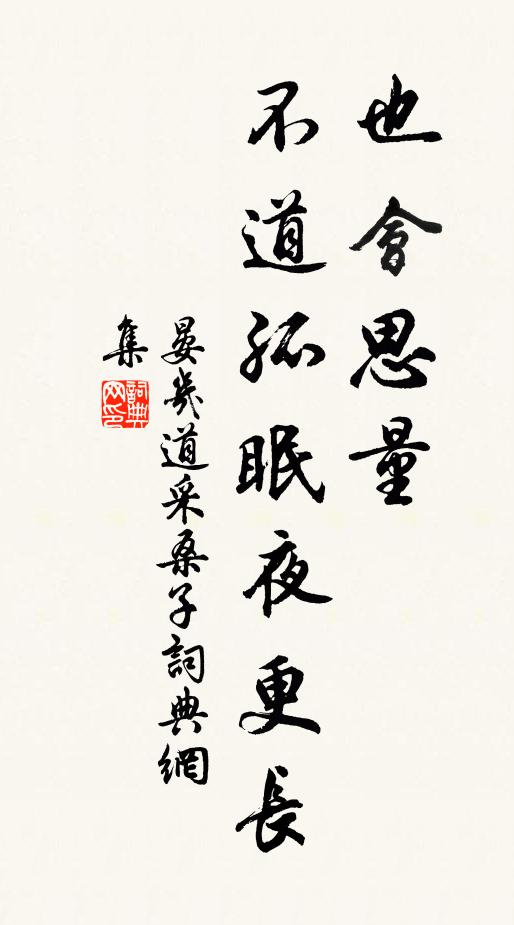 也會思量
不道孤眠夜更長
晏幾道采桑子詞典網
集
詞典網印